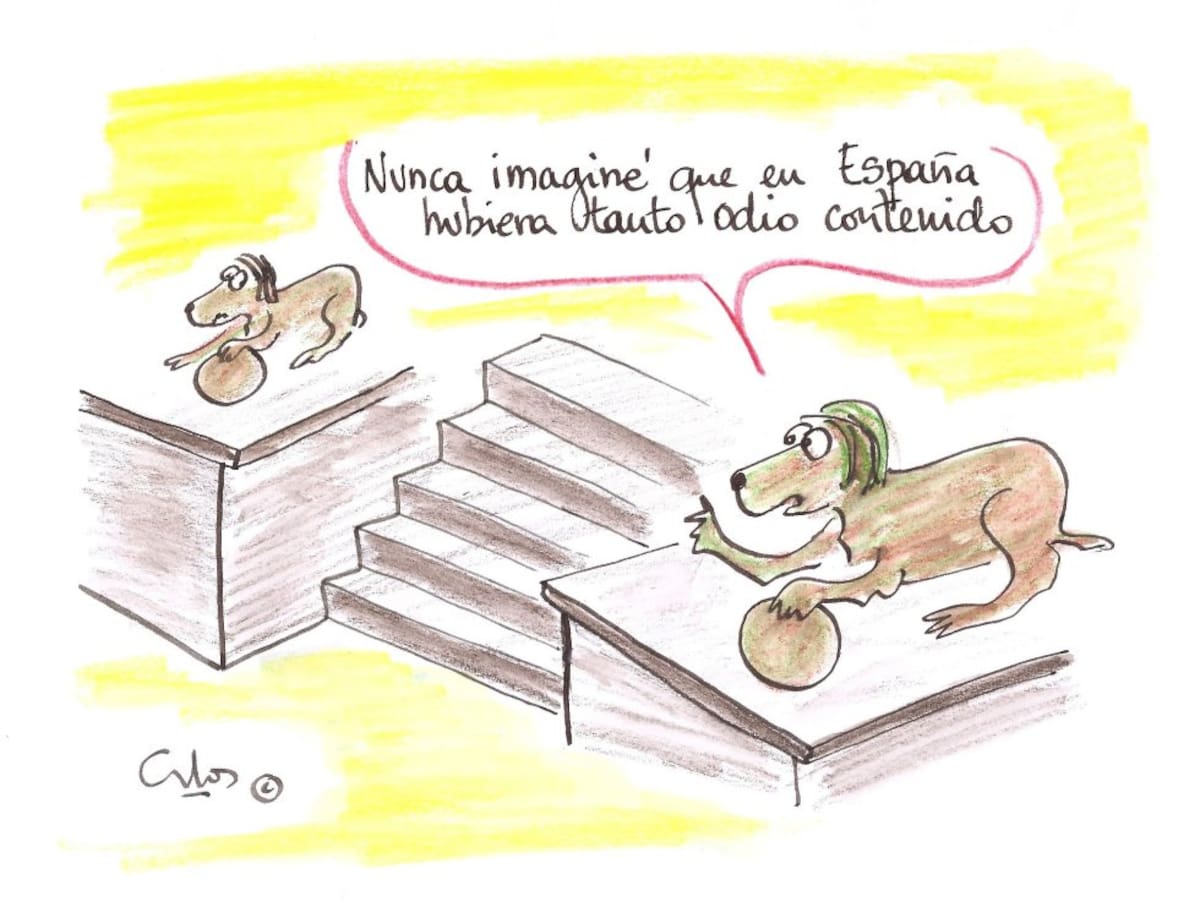 Nunca imaginé que en España
hubiera tanto odio contenido
©